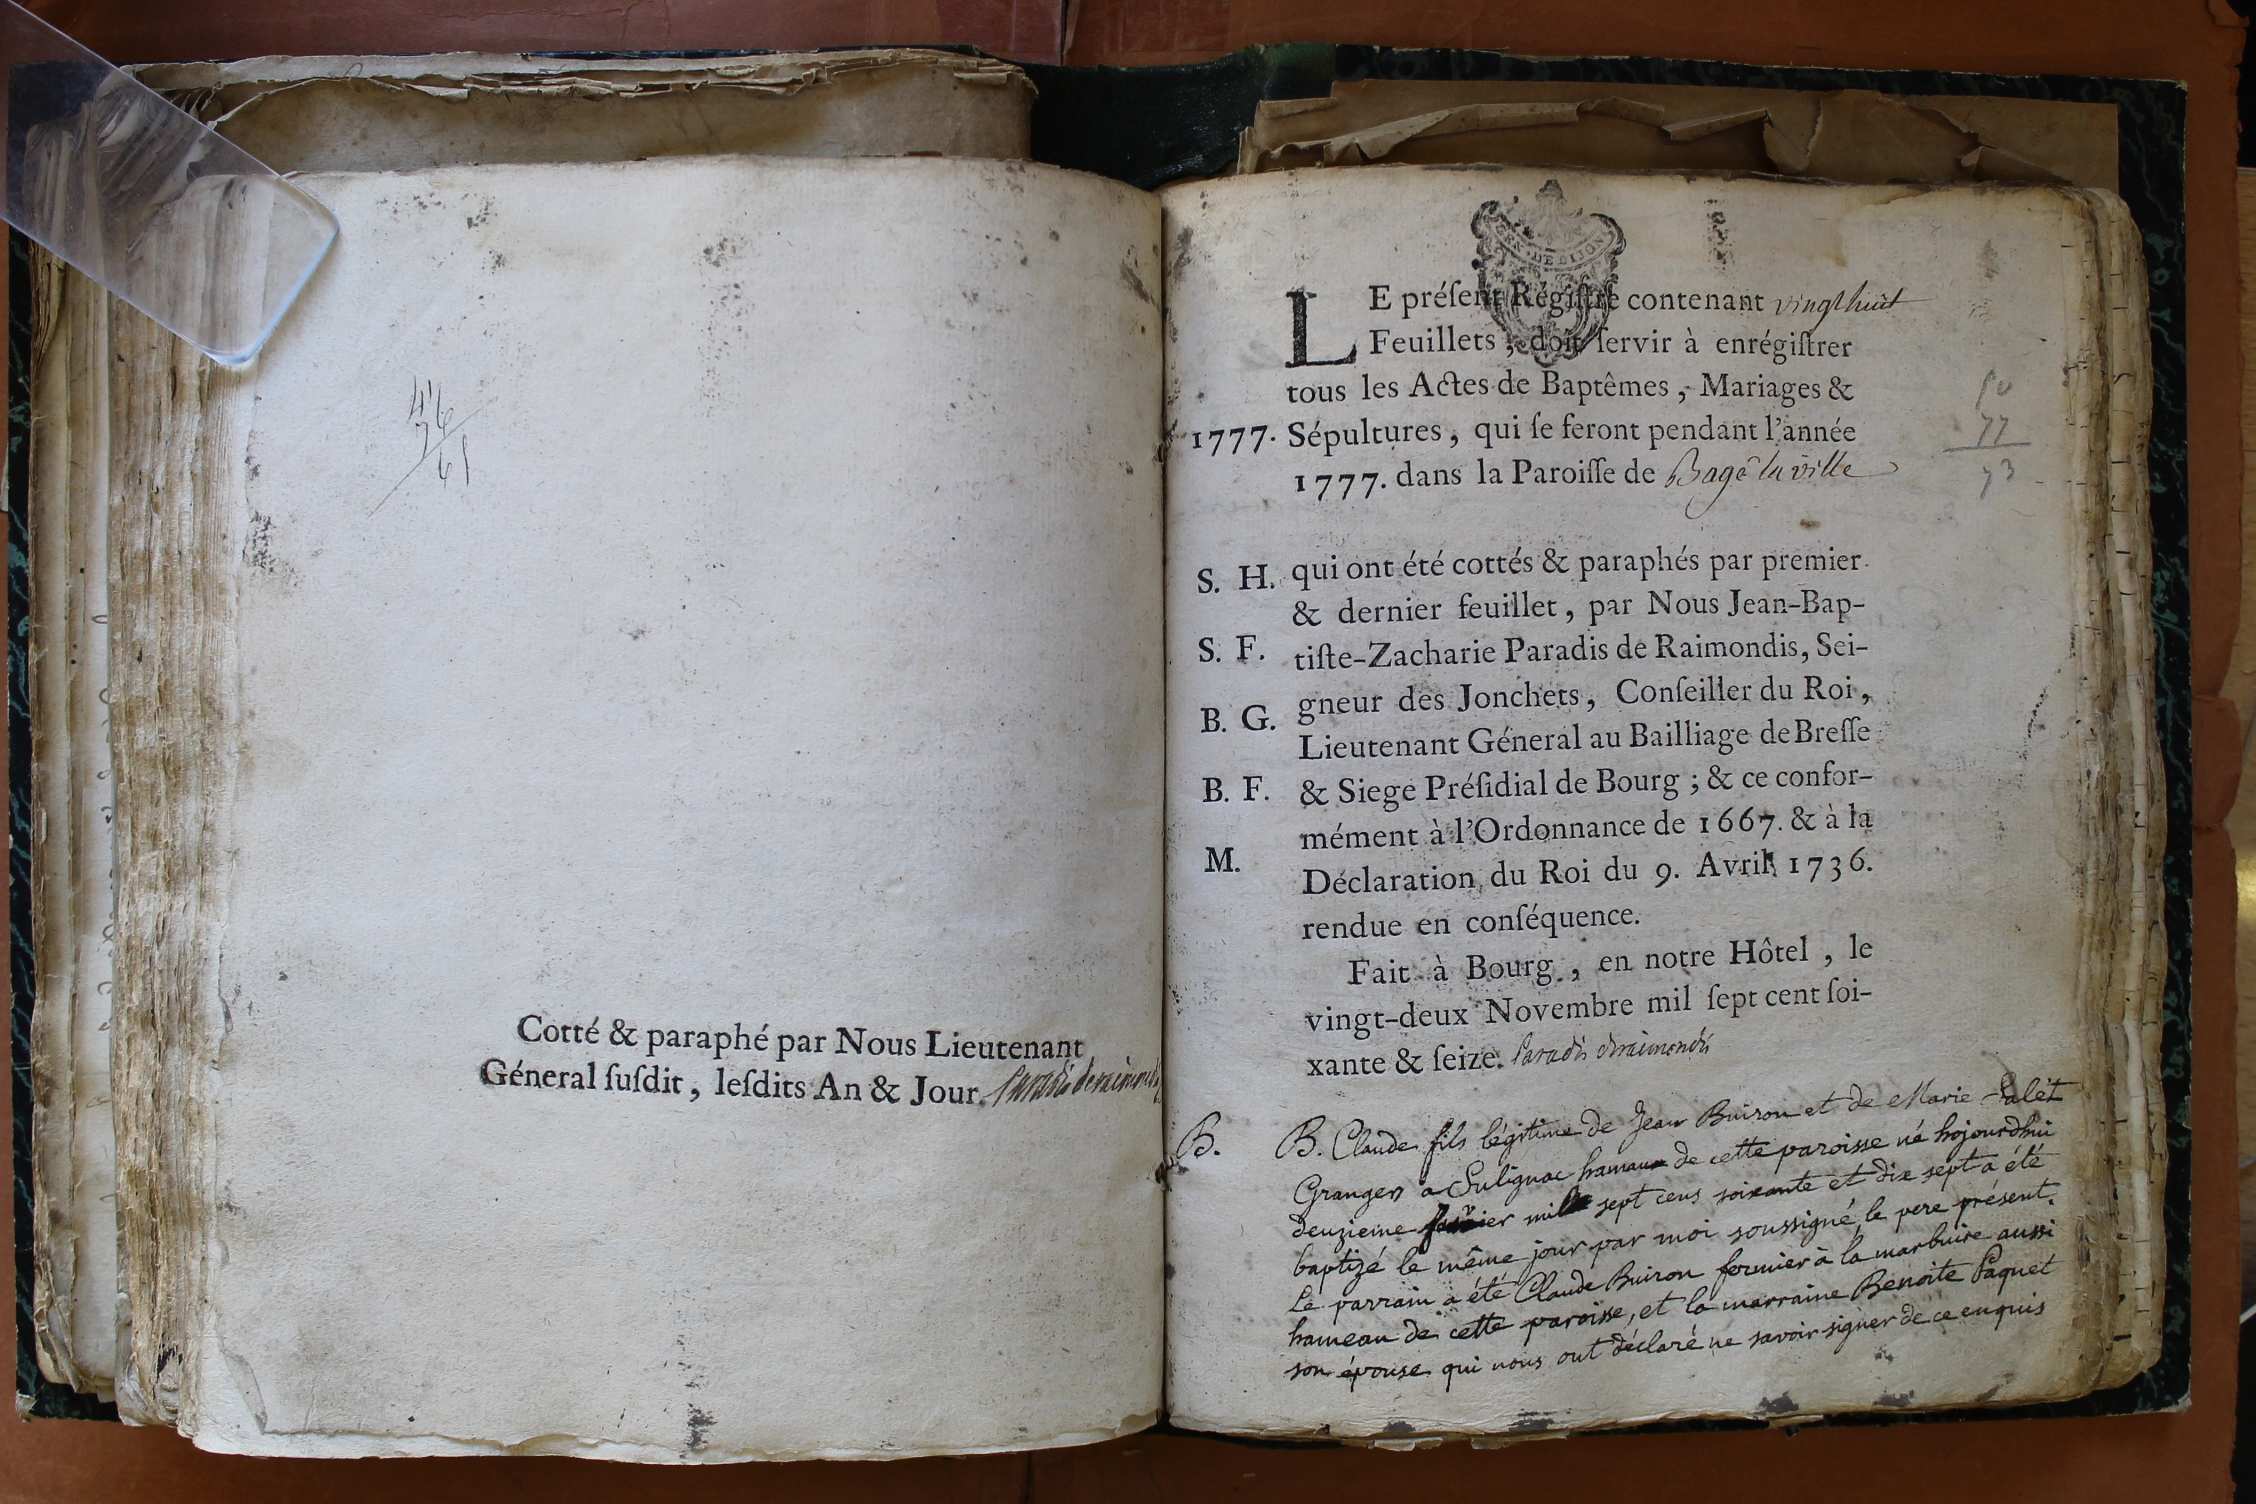 46
61
Cotté & paraphé par Nous Lieutenant
Géneral ſuſdit, leſdits An & Jour. Paradis deraimondis
GEN. DE DIJON
LE préſent Régiſtre contenant vingt huit
Feuillets, doit ſervir à enrégiſtrer
tous les Actes de Baptêmes, Mariages &
1777. Sépultures, qui ſe feront pendant l'année
1777. dans la Paroiſſe de Bagé la ville
77
73
S. H. qui ont été cottés & paraphés par premier
& dernier feuillet, par Nous Jean-Bap-
S. F. tiſte-Zacharie Paradis de Raimondis, Sei-
B. G. gneur des Jonchets, Conſeiller du Roi,
Lieutenant Géneral au Bailliage de Breſſe
B. F. & Siege Préſidial de Bourg; & ce confor-
mément à l'Ordonnance de 1667. & à la
M. Déclaration du Roi du 9. Avril 1736.
rendue en conſéquence.
Fait à Bourg, en notre Hôtel, le
vingt-deux Novembre mil ſept cent ſoi-
xante & ſeize. Paradis deraimondis
B. B. Claude fils légitime de Jean Buiron et de Marie Palét
Granger a Sulignac hamaux de cette paroisse né hojourdhui
deuzieme mille sept cens soixante et dix sept a été
baptizé le même jour par moi soussigné, le pere présent.
Le parrain a été Claude Buiron fermier à la marbuire aussi
hameau de cette paroisse, et la marraine Benoite Paquet
son épouse qui nous ont déclaré ne savoir signer de ce enquis